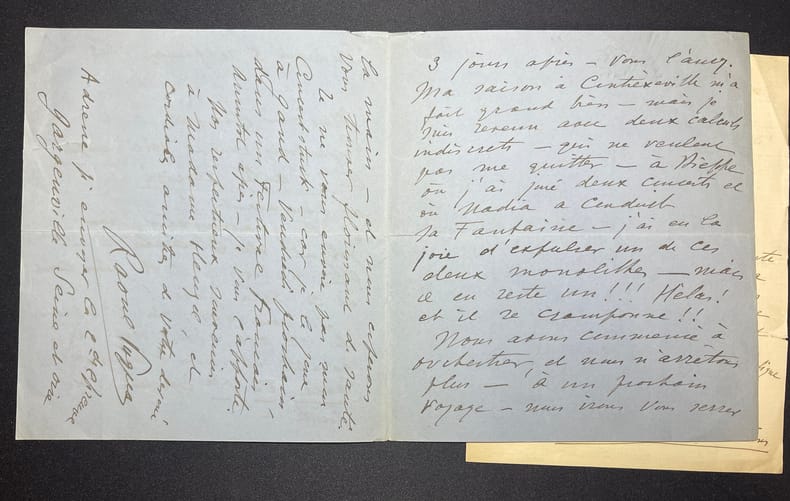 3 jours après – Vous l'avez.
Ma saison à Contrexéville m'a
fait grand bien – mais je
suis revenu avec deux calculs
indiscrets – qui ne veulent
pas me quitter – à Dieppe
où j'ai joué deux concerts et
où Nadia a conduit
sa Fantaisie – j'ai eu la
joie d'expulser un de ces
deux monolithes – mais
il en reste un!!! Hélas!
et il se cramponne!!
Nous avons commencé à
orchestrer, et nous n'arretons
plus – à un prochain
voyage – nous irons vous serrer
la main – et nous espérons
vous trouver florissant de santé.
Je ne vous envoie pas mon
Concertstuck – car je le joue
à Gand – Vendredi prochain
dans un Festival français,
aussitôt après – je vous l'apporte.
Mes respectueux souvenirs
à Madame Heugel et
cordiales amitiés de votre devoué
Raoul Pugno
Adresse pr envoyer la
Gargenville Seine et Oise